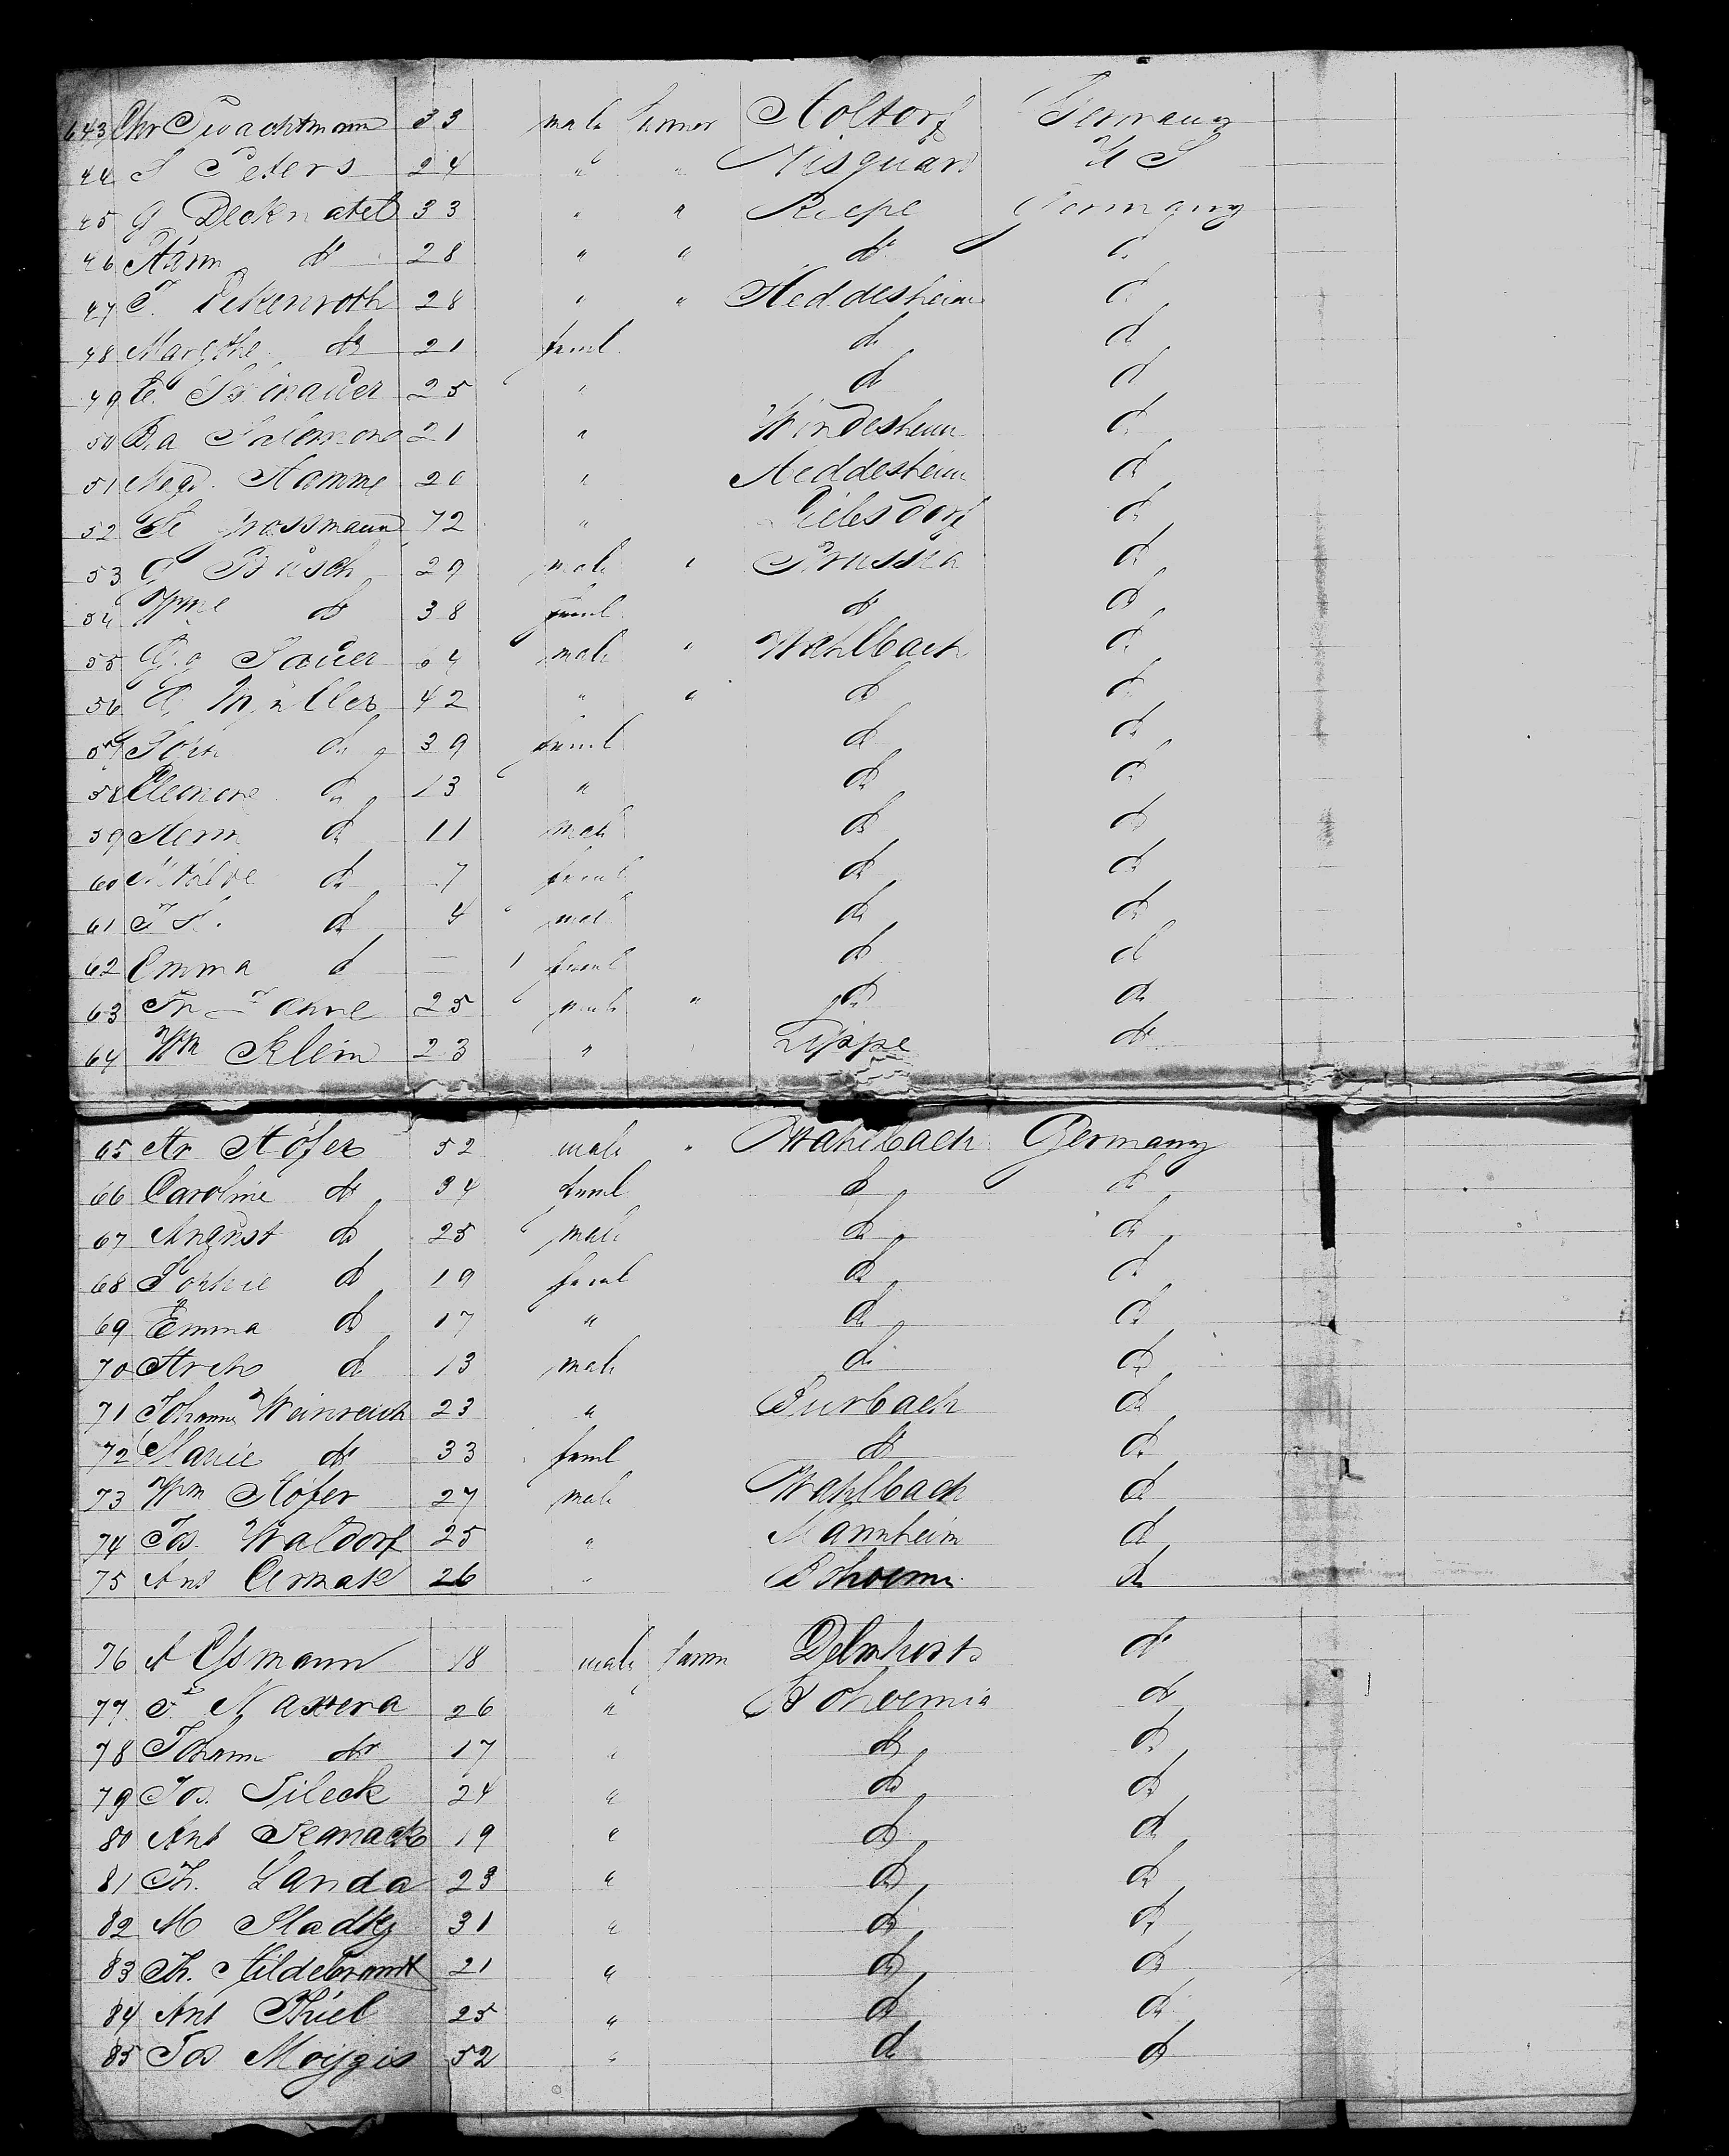 643 Chr Twachtmann 33 male farmer Holtorf Germany
44 S Peters 24 " " Visquard U S
45 G Decknatel 33 " " Riepe Germany
46 Harm do 28 " " do do
47 T. Pekenroth 28 " " Heddesheim do
48 Margthe do 21 feml do do
49 25 " do do
50 Ba Salomons 21 " Windesheim do
51 Magd. Hamme 20 " Heddesheim do
52 Grossmann 72 " do
53 G Busch 29 male " Prussia do
54 Wme do 38 feml do do
55 Sauer 64 male " Wahlbach do
56 Müller 42 " " do do
57 do 39 feml do do
58 Eleonore do 13 " do do
59 Herm do 11 male do do
60 do 7 feml do do
61 do 4 male do do
62 Emma do — 1 feml do do
63 25 male " do do
64 Wm Klein 23 " Lippe do
65 Hr Höfer 52 male " Wahlbach Germany
66 Caroline do 34 feml do do
67 August do 25 male do do
68 Sophie do 19 feml do do
69 Emma do 17 " do do
70 do 13 male do do
71 Johanns Weinreich 23 " Burbach do
72 Marie do 33 feml do do
73 Wm Höfer 27 male Wahlbach do
74 Jos. Waldorf 25 " Mannheim do
75 Ant Cermak 26 " Bohoemi do
76 A Essmann 18 male farm Delmhorst do
77 Naxera 26 " Bohoemia do
78 Johann do 17 " do do
79 Jos. Sileck 24 " do do
80 Ant Semack 19 " do do
81 Th. Landa 23 " do do
82 M Sladky 31 " do do
83 Th. Hildebrandt 21 " do do
84 Ant Thiel 25 " do do
85 Jos Moijzis 52 " do do